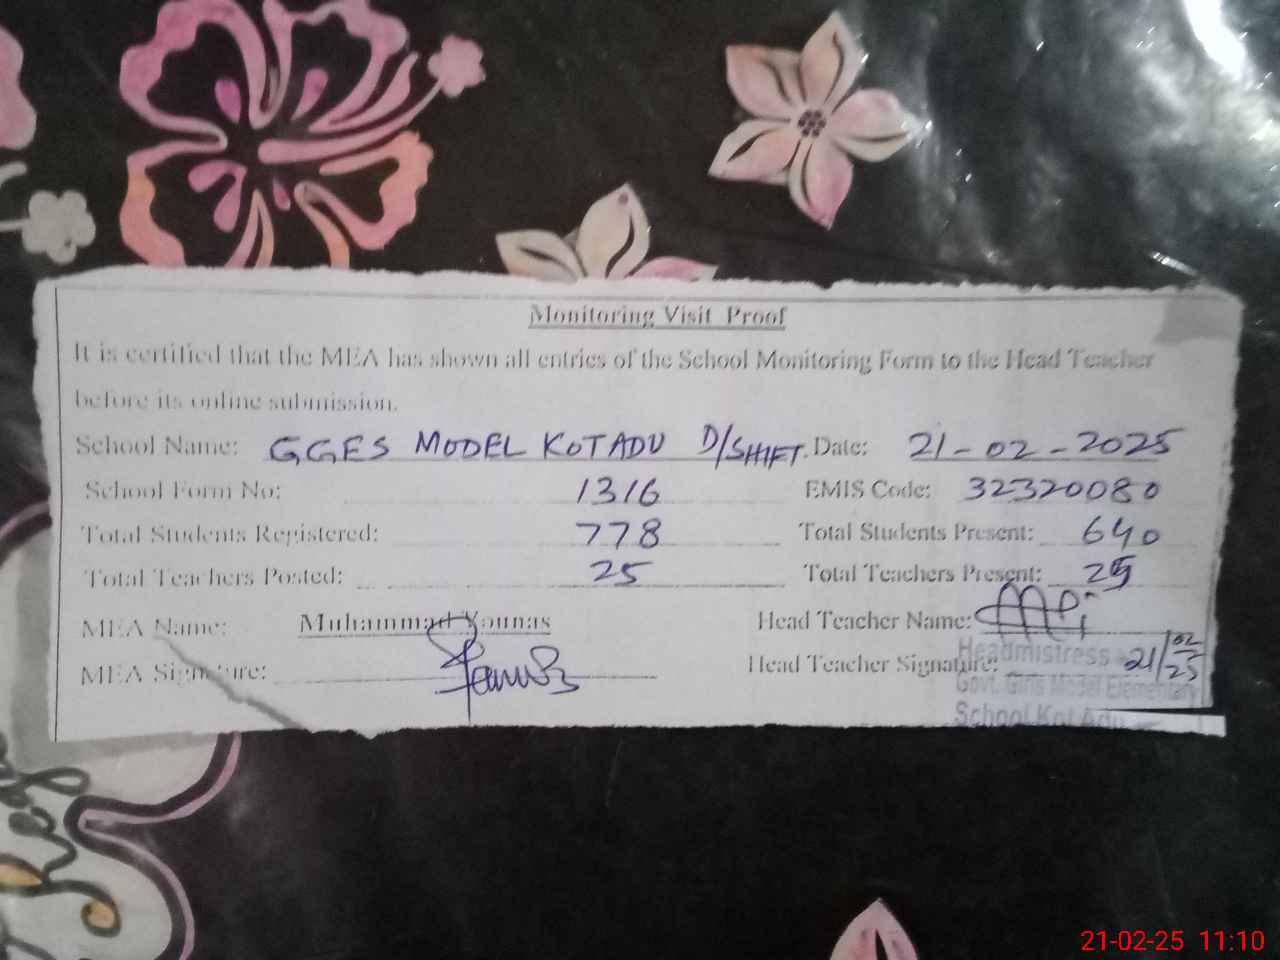 Monitoring Visit Proof
It is certified that the MEA has shown all entries of the School Monitoring Form to the Head Teacher
before its online submission.
School Name: GGES MODEL KOT ADU D/SHIFT. Date: 21-02-2025
School Form No: 1316 EMIS Code: 32320080
Total Students Registered: 778 Total Students Present: 640
Total Teachers Posted: 25 Total Teachers Present: 25
MEA Name: Muhammad Younas Head Teacher Name:
MEA Signature: Head Teacher Signature: 21/02/25
Headmistress
Govt. Girls Model Elementary
School Kot Adu
21-02-25 11:10